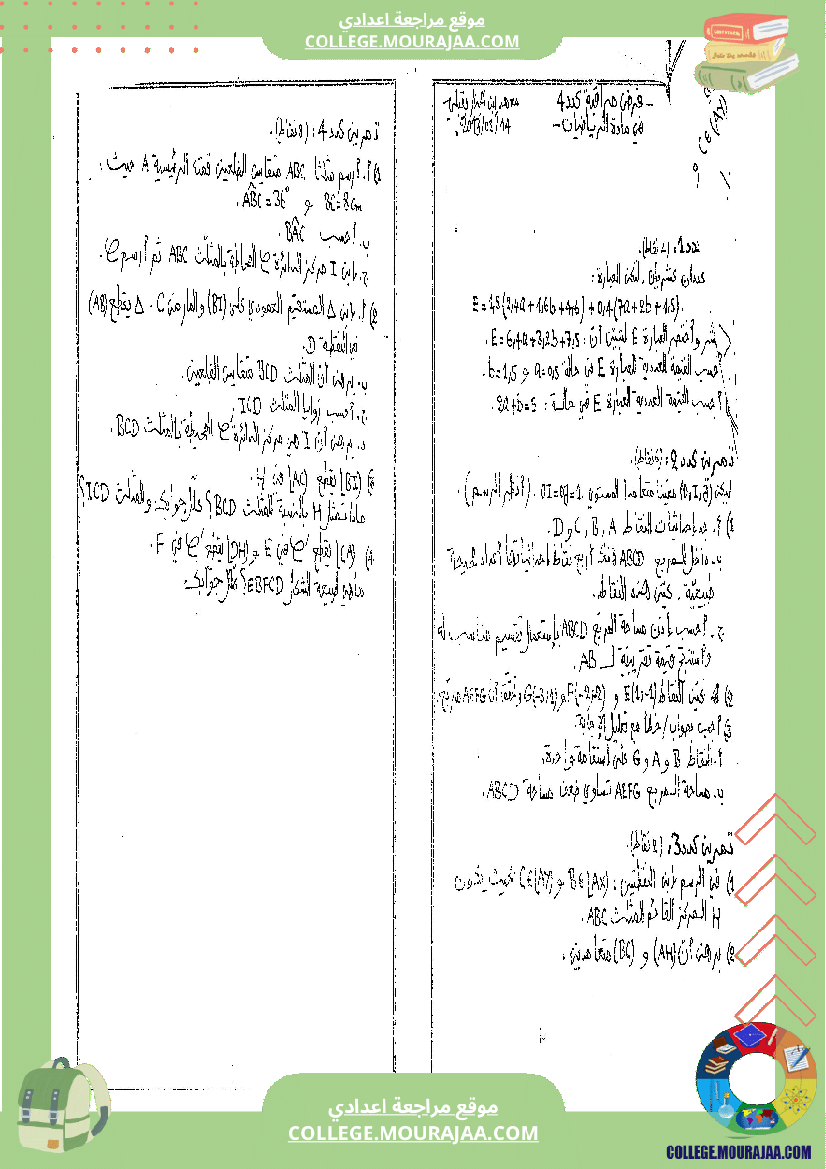 موقع مراجعة اعدادي
COLLEGE.MOURAJAA.COM
- فرض مراقبة عدد 4
في مادة الرياضيات -
عدد 1: (4 نقاط).
عددان عشريان، لتكن العبارة:
E = 1,5(2,4a + 1,6b + 4,6) + 0,4(7a + 2b + 1,5).
أنشر وأختصر العبارة E لتبيّن أن: E = 6,4a + 3,2b + 7,5.
أحسب القيمة العددية للعبارة E في حالة a = 0,5 و b = 1,5.
أحسب القيمة العددية للعبارة E في حالة: 2a + b = 5.
تمرين عدد 2: (6 نقاط).
ليكن (O,I,J) معينا متعامدا للمستوي OI = OJ = 1. (أنظر الرسم).
1) أ. جد إحداثيات النقاط A, B, C و D.
ب. داخل المربع ABCD توجد أربع نقاط إحداثياتها أعداد صحيحة
طبيعية. عيّن هذه النقاط.
ج. أحسب إذن مساحة المربع ABCD بإستعمال تقسيم مناسب له
وأستنتج قيمة تقريبية لـ AB.
2) عيّن النقاط E(1;-1) و F(-2;-2) و G(-3;1) وتحقّق أن AEFG مربع.
3) أجب بصواب/خطأ مع تعليل الإجابة
أ. النقاط B و A و G على إستقامة واحدة.
ب. مساحة المربع AEFG تساوي ضعف مساحة ABCD.
تمرين عدد 3: (2 نقاط).
1) في الرسم ابن النقطتين: B∈[AX) و C∈[AY) بحيث يكون
H المركز القائم للمثلث ABC.
2) برهن أن (AH) و (BC) متعامدين.
تمرين عدد 4: (8 نقاط).
1) أ. أرسم مثلثا ABC متقايس الضلعين قمته الرئيسية A حيث:
BC = 8cm و ABC = 36°.
ب. أحسب BAC.
ج. ابن I مركز الدائرة المحاطة بالمثلث ABC ثم أرسم
2) أ. ابن Δ المستقيم العمودي على (BI) والمار من C. Δ يقطع (AB)
في النقطة D.
ب. برهن أن المثلث BCD متقايس الضلعين.
ج. أحسب زوايا المثلث ICD
د. برهن أن I هي مركز الدائرة المحيطة بالمثلث BCD.
3) (BI) يقطع [AC] في H.
ماذا تمثل H بالنسبة للمثلث BCD؟ علّل جوابك وللمثلث ICD؟
4) (CA) يقطع في E و (DH) يقطع في F.
ماهي طبيعة الشكل EBFCD؟ علّل جوابك
موقع مراجعة اعدادي
COLLEGE.MOURAJAA.COM
COLLEGE.MOURAJAA.COM